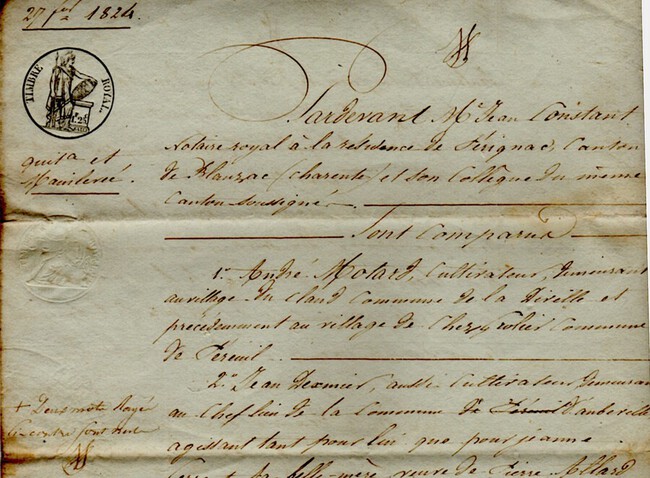 27 fer 1824.
TIMBRE ROYAL.
Pardevant Me Jean Constant
Notaire royal à la résidence de Pérignac, Canton
de Blanzac (charente) et son Collègue du même
Canton soussigné.
Sont Comparus
1° André Motard, Cultivateur, demeurant
au village du claud Commune de la Diville et
précédemment au village de Chez Commune
de Pereuil.
2° Jean Dexmier, aussi Cultivateur demeurant
au Chef lieu de la Commune de
agissant tant pour lui que pour jeanne
belle-mère, veuve de Pierre Allard
quitce et
Mainlevée.
+ Deux mots Rayé